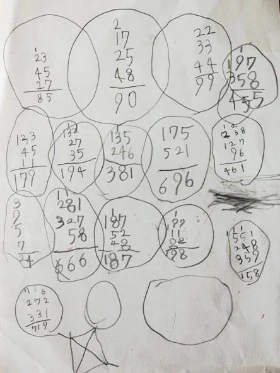 23
45
27
85
2
17
25
48
90
22
33
44
99
197
358
455
123
45
11
179
132
27
35
194
135
246
381
175
521
696
238
127
96
461
3
9
5
7
281
327
58
666
187
52
48
187
551
248
359
158
716
272
331
719